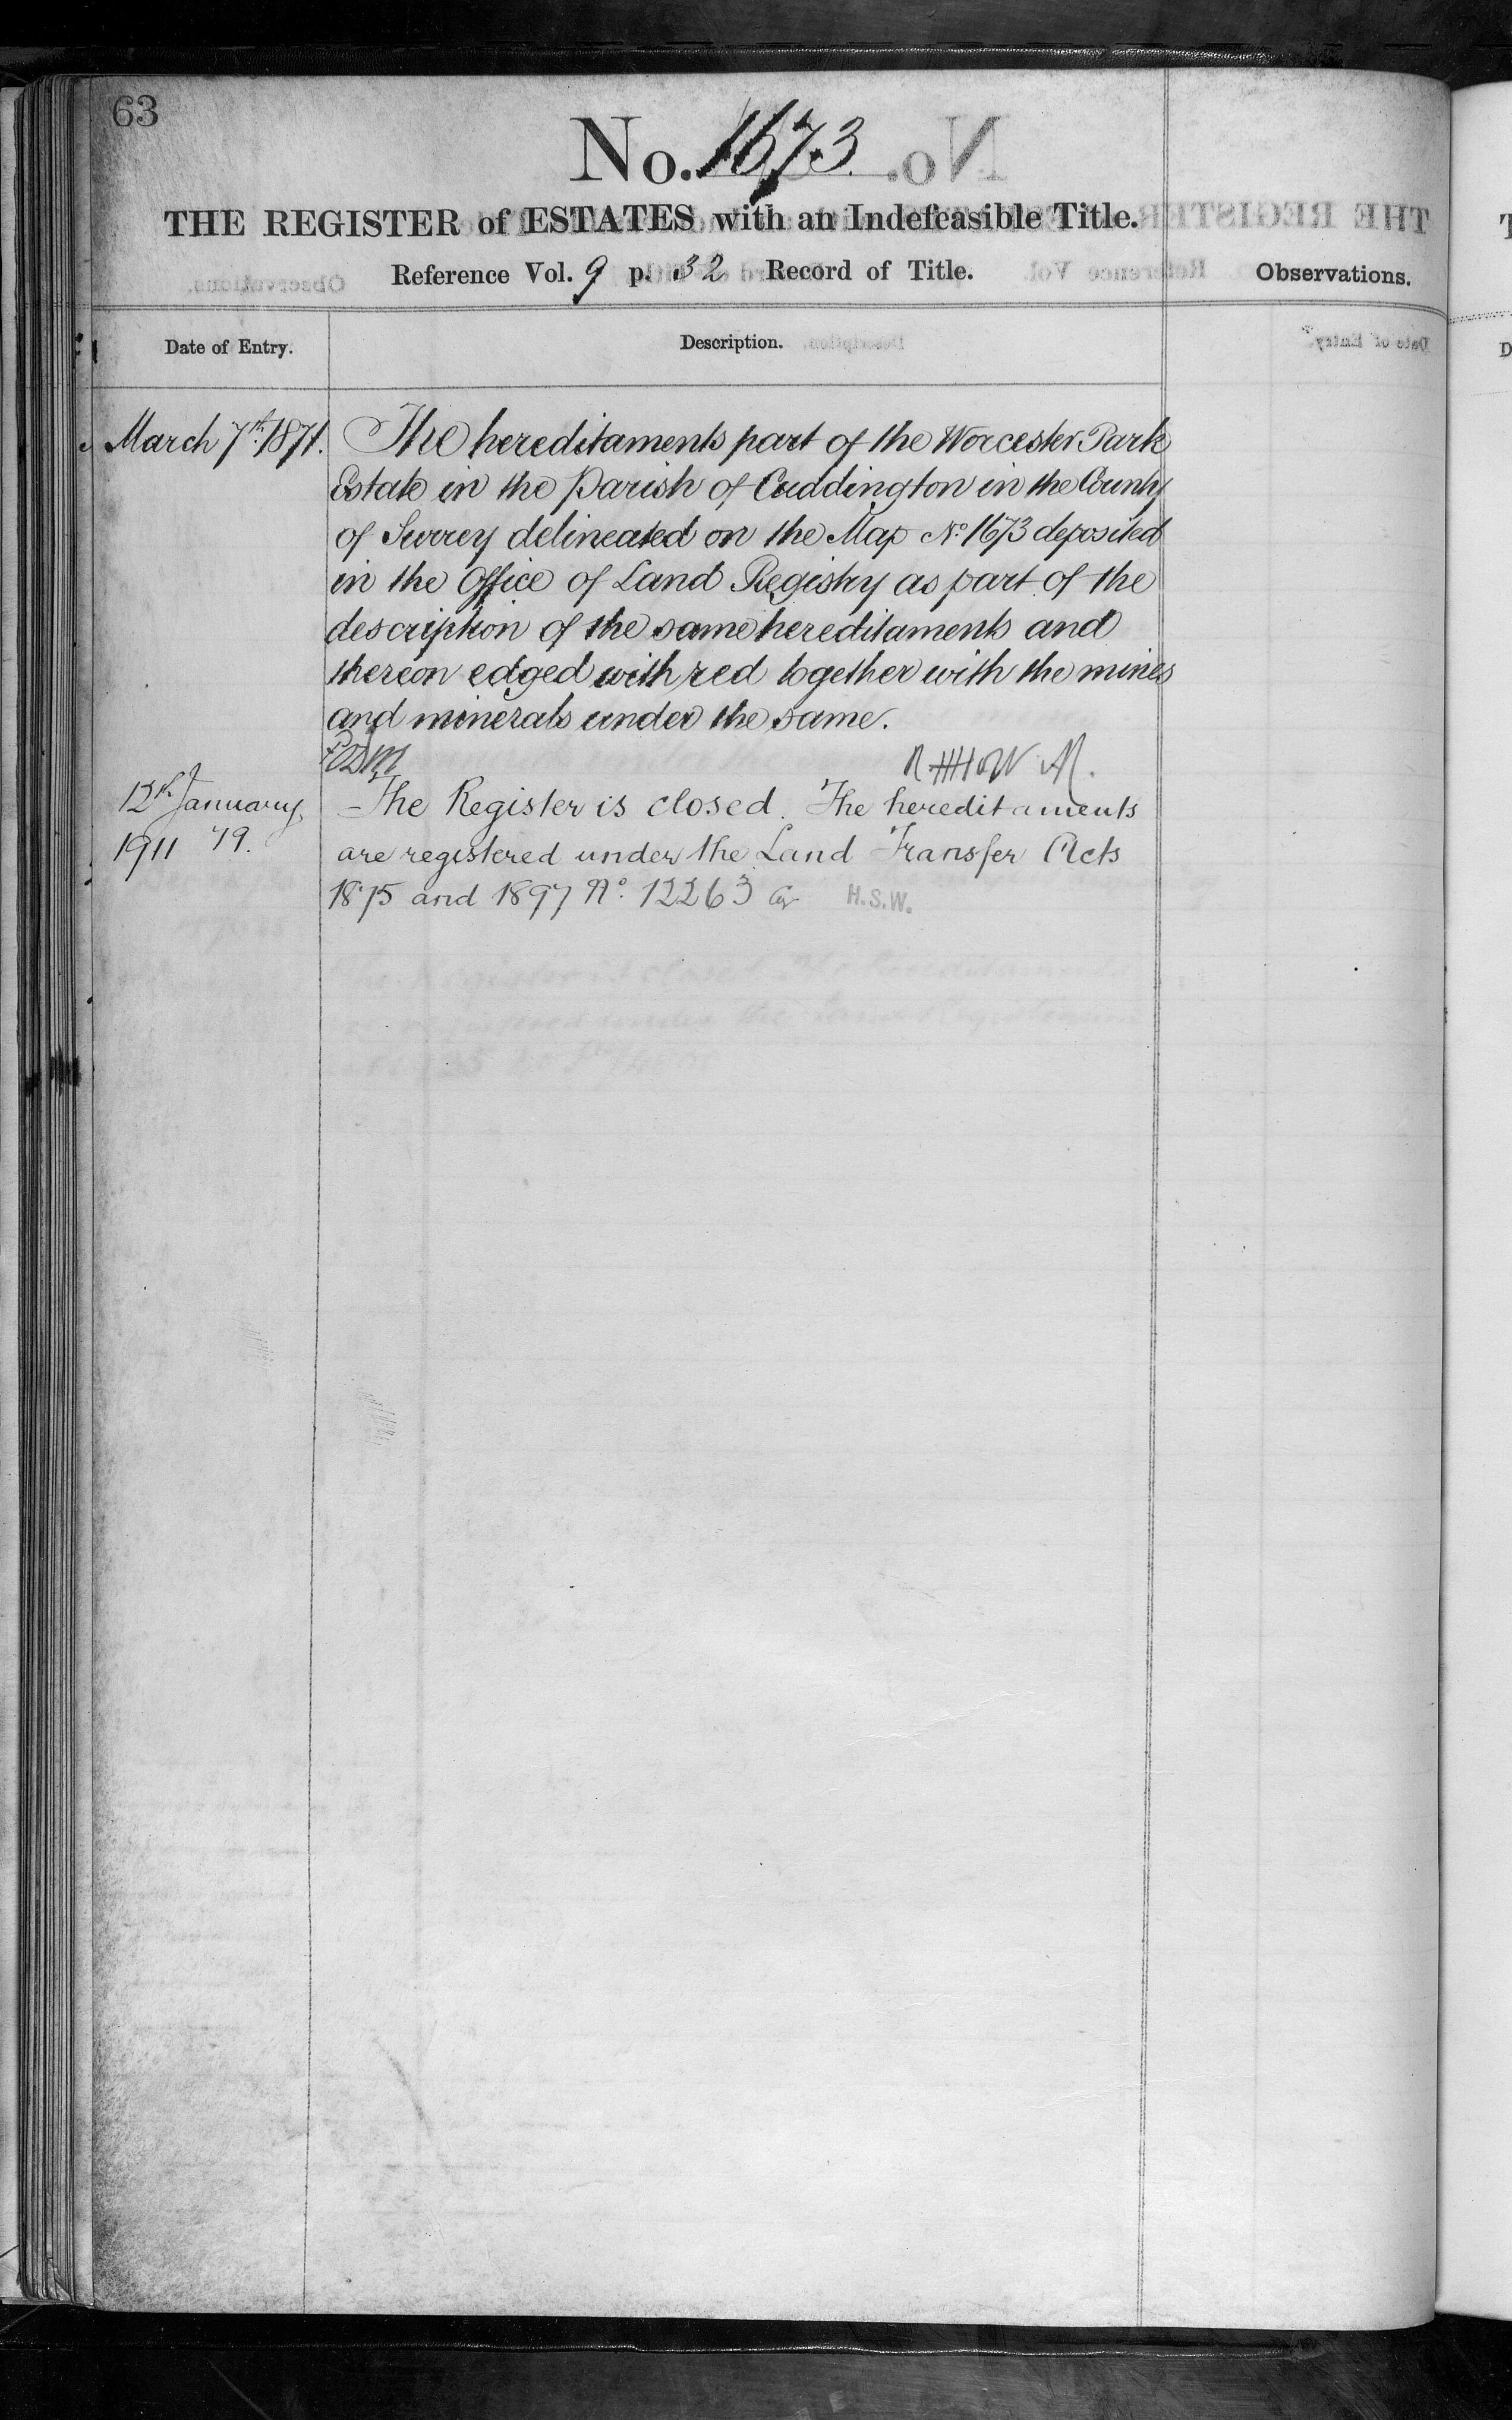 63
No. 1673.
THE REGISTER of ESTATES with an Indefeasible Title.
Reference Vol. 9 p. 32 Record of Title.
Observations.
Date of Entry.
Description.
March 7th. 1871.
The hereditaments part of the Worcester Park
Estate in the Parish of Cuddington in the County
of Surrey delineated on the Map No. 1673 deposited
in the Office of Land Registry as part of the
description of the same hereditaments and
thereon edged with red together with the mines
and minerals under the same.
12th January,
1911 79.
The Register is closed. The hereditaments
are registered under the Land Transfer Acts
1875 and 1897 No. 12263 H.S.W.